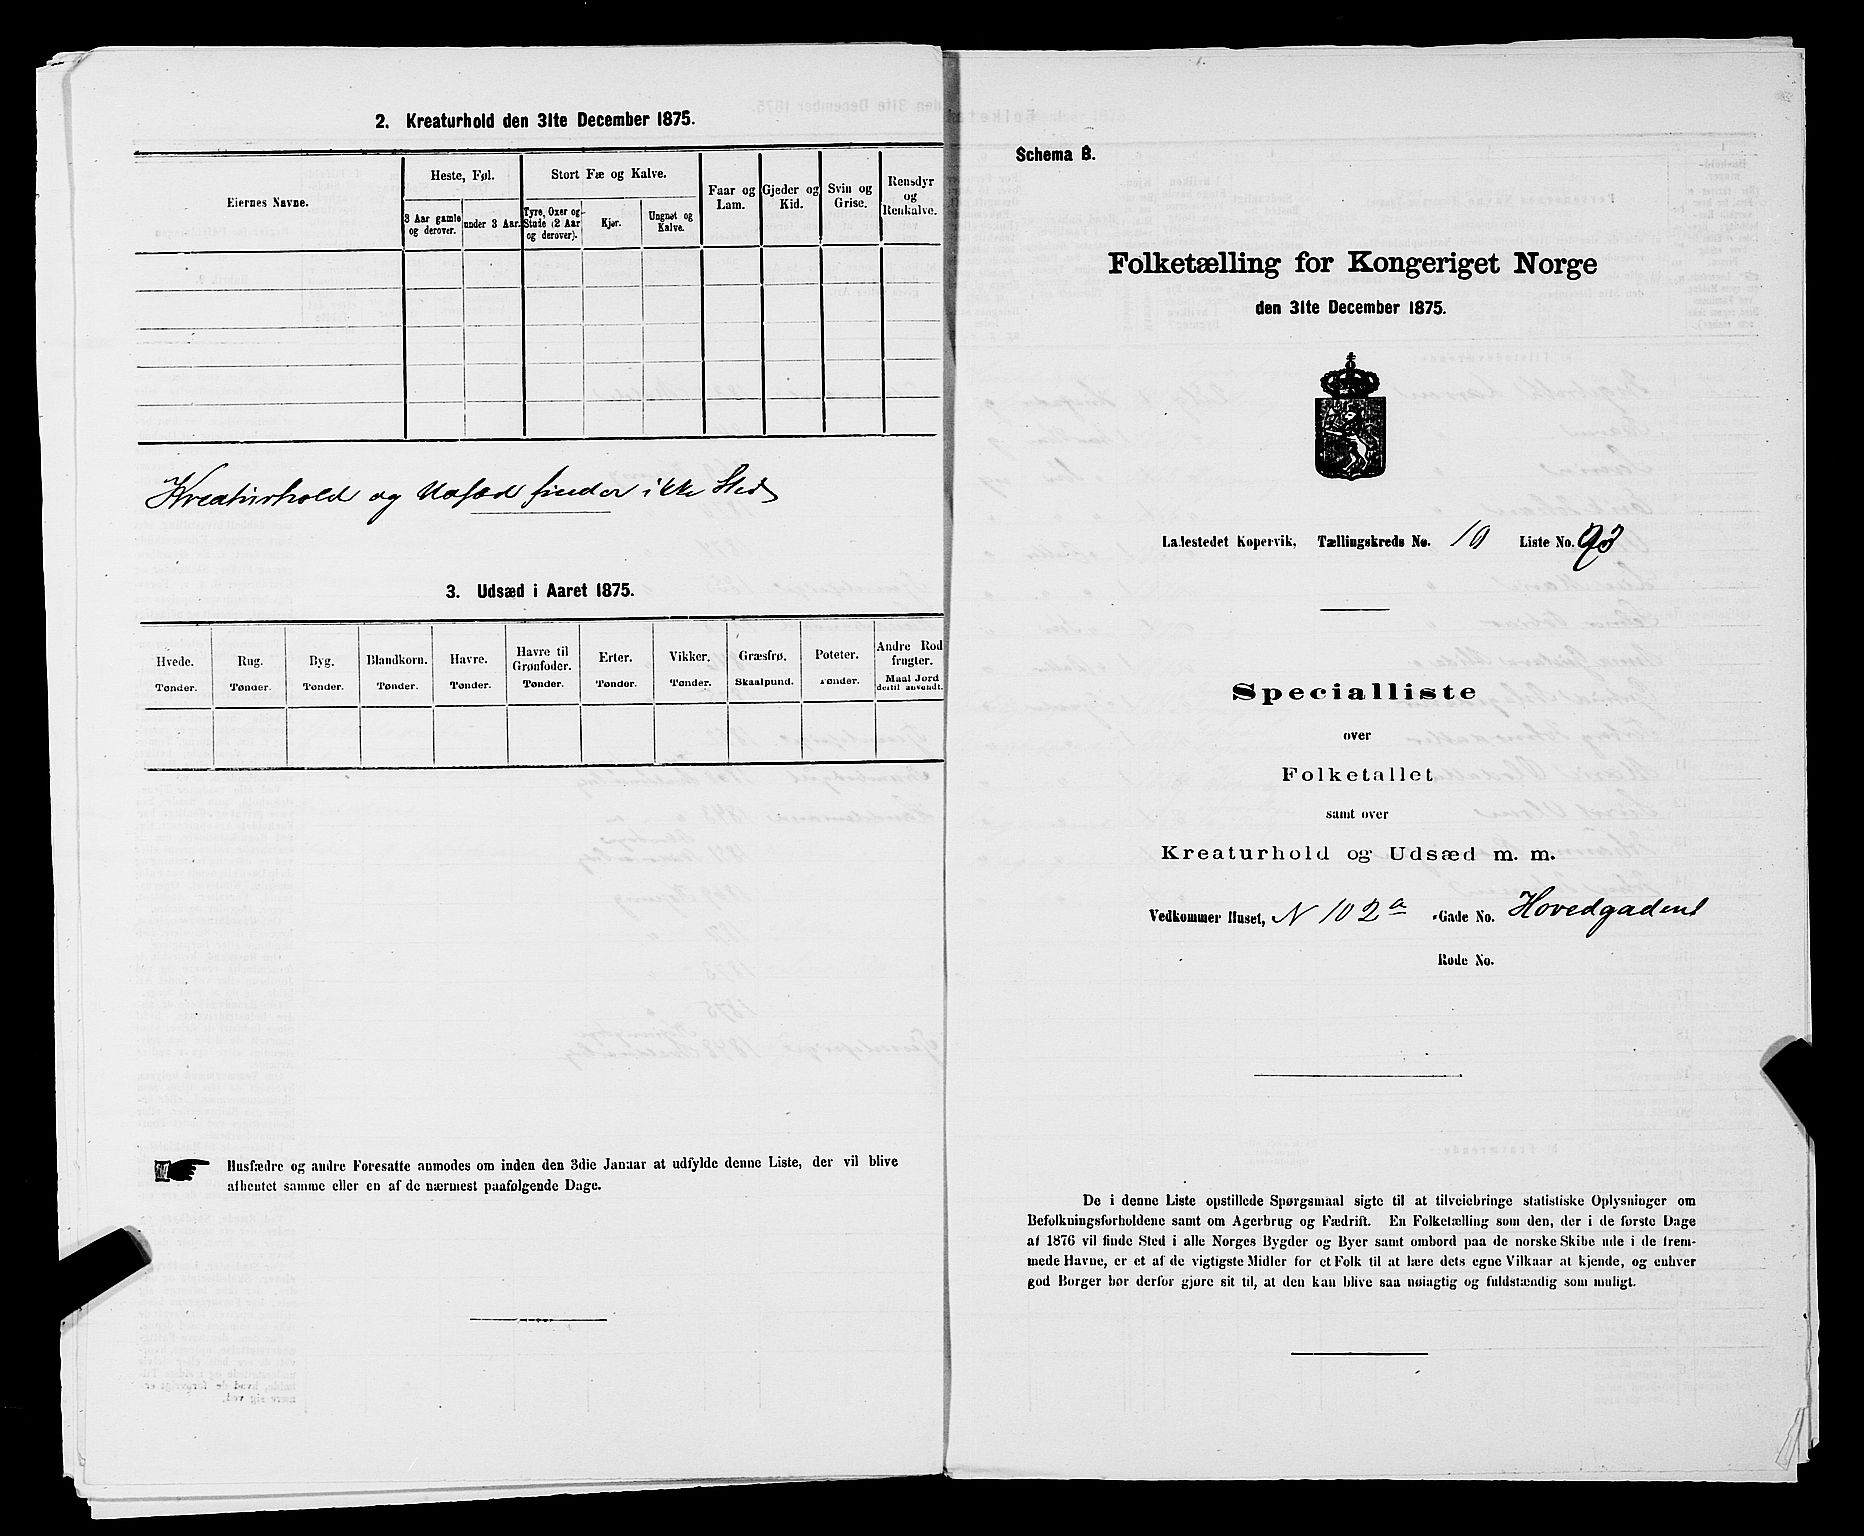 2. Kreaturhold den 31te December 1875.
Eiernes Navne.
Heste, Føl.
Stort Fæ og Kalve.
Faar og Lam.
Gjeder og Kid.
Svin og Grise.
Rensdyr og Renkalve.
3 Aar gamle og derover.
under 3 Aar.
Tyre, Oxer og Stude (2 Aar og derover).
Kjør.
Ungnøt og Kalve.
Kreaturhold og Udsæd finder ikke Sted
3. Udsæd i Aaret 1875.
Hvede. Tønder.
Rug. Tønder.
Byg. Tønder.
Blandkorn. Tønder.
Havre. Tønder.
Havre til Grønfoder. Tønder.
Erter. Tønder.
Vikker. Tønder.
Græsfrø. Skaalpund.
Poteter. Tønder.
Andre Rodfrugter. Maal Jord dertil anvendt.
Husfædre og andre Foresatte anmodes om inden den 3die Januar at udfylde denne Liste, der vil blive
afhentet samme eller en af de nærmest paafølgende Dage.
Schema B.
Folketælling for Kongeriget Norge
den 31te December 1875.
Ladestedet Kopervik, Tællingskreds No. 10 Liste No.
Specialliste
over
Folketallet
samt over
Kreaturhold og Udsæd m. m.
Vedkommer Huset, N 102a Gade No. Hovedgaden
Rode No.
De i denne Liste opstillede Spørgsmaal sigte til at tilveiebringe statistiske Oplysninger om
Befolkningsforholdene samt om Agerbrug og Fædrift. En Folketælling som den, der i de første Dage
af 1876 vil finde Sted i alle Norges Bygder og Byer samt ombord paa de norske Skibe ude i de frem-
mede Havne, er et af de vigtigste Midler for et Folk til at lære dets egne Vilkaar at kjende, og enhver
god Borger bør derfor gjøre sit til, at den kan blive saa nøiagtig og fuldstændig som muligt.